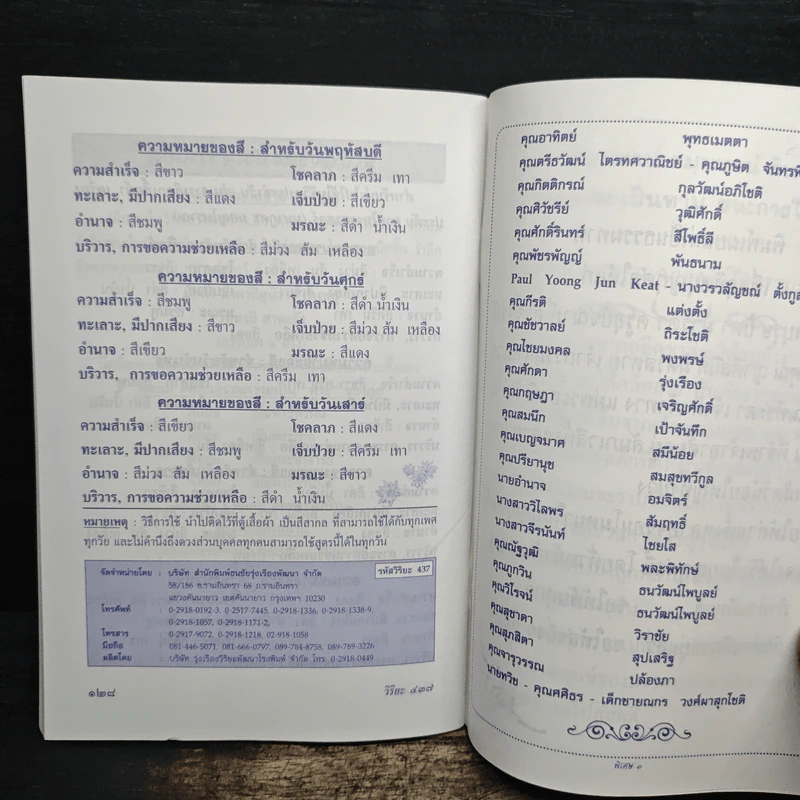 ความหมายของสี : สำหรับวันพฤหัสบดี
ความสำเร็จ : สีขาว โชคลาภ : สีครีม เทา
ทะเลาะ, มีปากเสียง : สีแดง เจ็บป่วย : สีเขียว
อำนาจ : สีชมพู มรณะ : สีดำ น้ำเงิน
บริวาร, การขอความช่วยเหลือ : สีม่วง ส้ม เหลือง
ความหมายของสี : สำหรับวันศุกร์
ความสำเร็จ : สีชมพู โชคลาภ : สีดำ น้ำเงิน
ทะเลาะ, มีปากเสียง : สีขาว เจ็บป่วย : สีม่วง ส้ม เหลือง
อำนาจ : สีเขียว มรณะ : สีแดง
บริวาร, การขอความช่วยเหลือ : สีครีม เทา
ความหมายของสี : สำหรับวันเสาร์
ความสำเร็จ : สีเขียว โชคลาภ : สีแดง
ทะเลาะ, มีปากเสียง : สีชมพู เจ็บป่วย : สีครีม เทา
อำนาจ : สีม่วง ส้ม เหลือง มรณะ : สีขาว
บริวาร, การขอความช่วยเหลือ : สีดำ น้ำเงิน
หมายเหตุ : วิธีการใช้ นำไปติดไว้ที่ตู้เสื้อผ้า เป็นสีสากล ที่สามารถใช้ได้กับทุกเพศ
ทุกวัย และไม่คำนึงถึงดวงส่วนบุคคลทุกคนสามารถใช้สูตรนี้ได้ในทุกวัน
จัดจำหน่ายโดย : บริษัท สำนักพิมพ์ธนชัยรุ่งเรืองพัฒนา จำกัด รหัสวิริยะ 437
58/186 ถ.รามอินทรา 68 ถ.รามอินทรา
แขวงคันนายาว เขตคันนายาว กรุงเทพฯ 10230
โทรศัพท์ : 0-2918-0192-3, 0-2517-7445, 0-2918-1336, 0-2918-1338-9,
0-2918-1057, 0-2918-1171-2,
โทรสาร : 0-2917-9072, 0-2918-1218, 02-918-1058
มือถือ : 081-446-5071, 081-666-0797, 089-784-8758, 089-789-3226
ผลิตโดย : บริษัท รุ่งเรืองวิริยะพัฒนาโรงพิมพ์ จำกัด โทร. 0-2918-0449
๑๒๘ วิริยะ ๔๓๗
คุณอาทิตย์ พุทธเมตตา
คุณตรีธวัฒน์ ไตรทศวาณิชย์ - คุณภูษิต จันทร
คุณกิตติกรณ์ กุลวัฒน์อภิโชติ
คุณศิวัชรีย์ วุฒิศักดิ์
คุณศักดิ์รินทร์ สีโพธิ์ลี
คุณพัชรพัญญ์ พันธนาม
Paul Yoong Jun Keat - นางวรวลัญชณ์ ตั้งกูล
คุณกีรติ แต่งตั้ง
คุณชัชวาลย์ ถิระโชติ
คุณไชยมงคล พงพรษ์
คุณศักดา รุ่งเรือง
คุณกฤษฎา เจริญศักดิ์
คุณสมนึก เป้าจันทึก
คุณเบญจมาศ สมีน้อย
คุณปรียานุช สมสุขทวีกูล
นายอำนาจ อมจิตร์
นางสาววิไลพร สัมฤทธิ์
นางสาวจีรนันท์ ไชยโส
คุณณัฐวุฒิ พละพิทักษ์
คุณภูกวิน ธนวัฒน์ไพบูลย์
คุณวิโรจน์ ธนวัฒน์ไพบูลย์
คุณสุชาดา วิราชัย
คุณสุภสิตา สุปเสริฐ
คุณจารุวรรณ ปล้องภา
นายทวิช - คุณศศิธร - เด็กชายณกร วงศ์ผาสุกโชติ
พิเศษ ๑